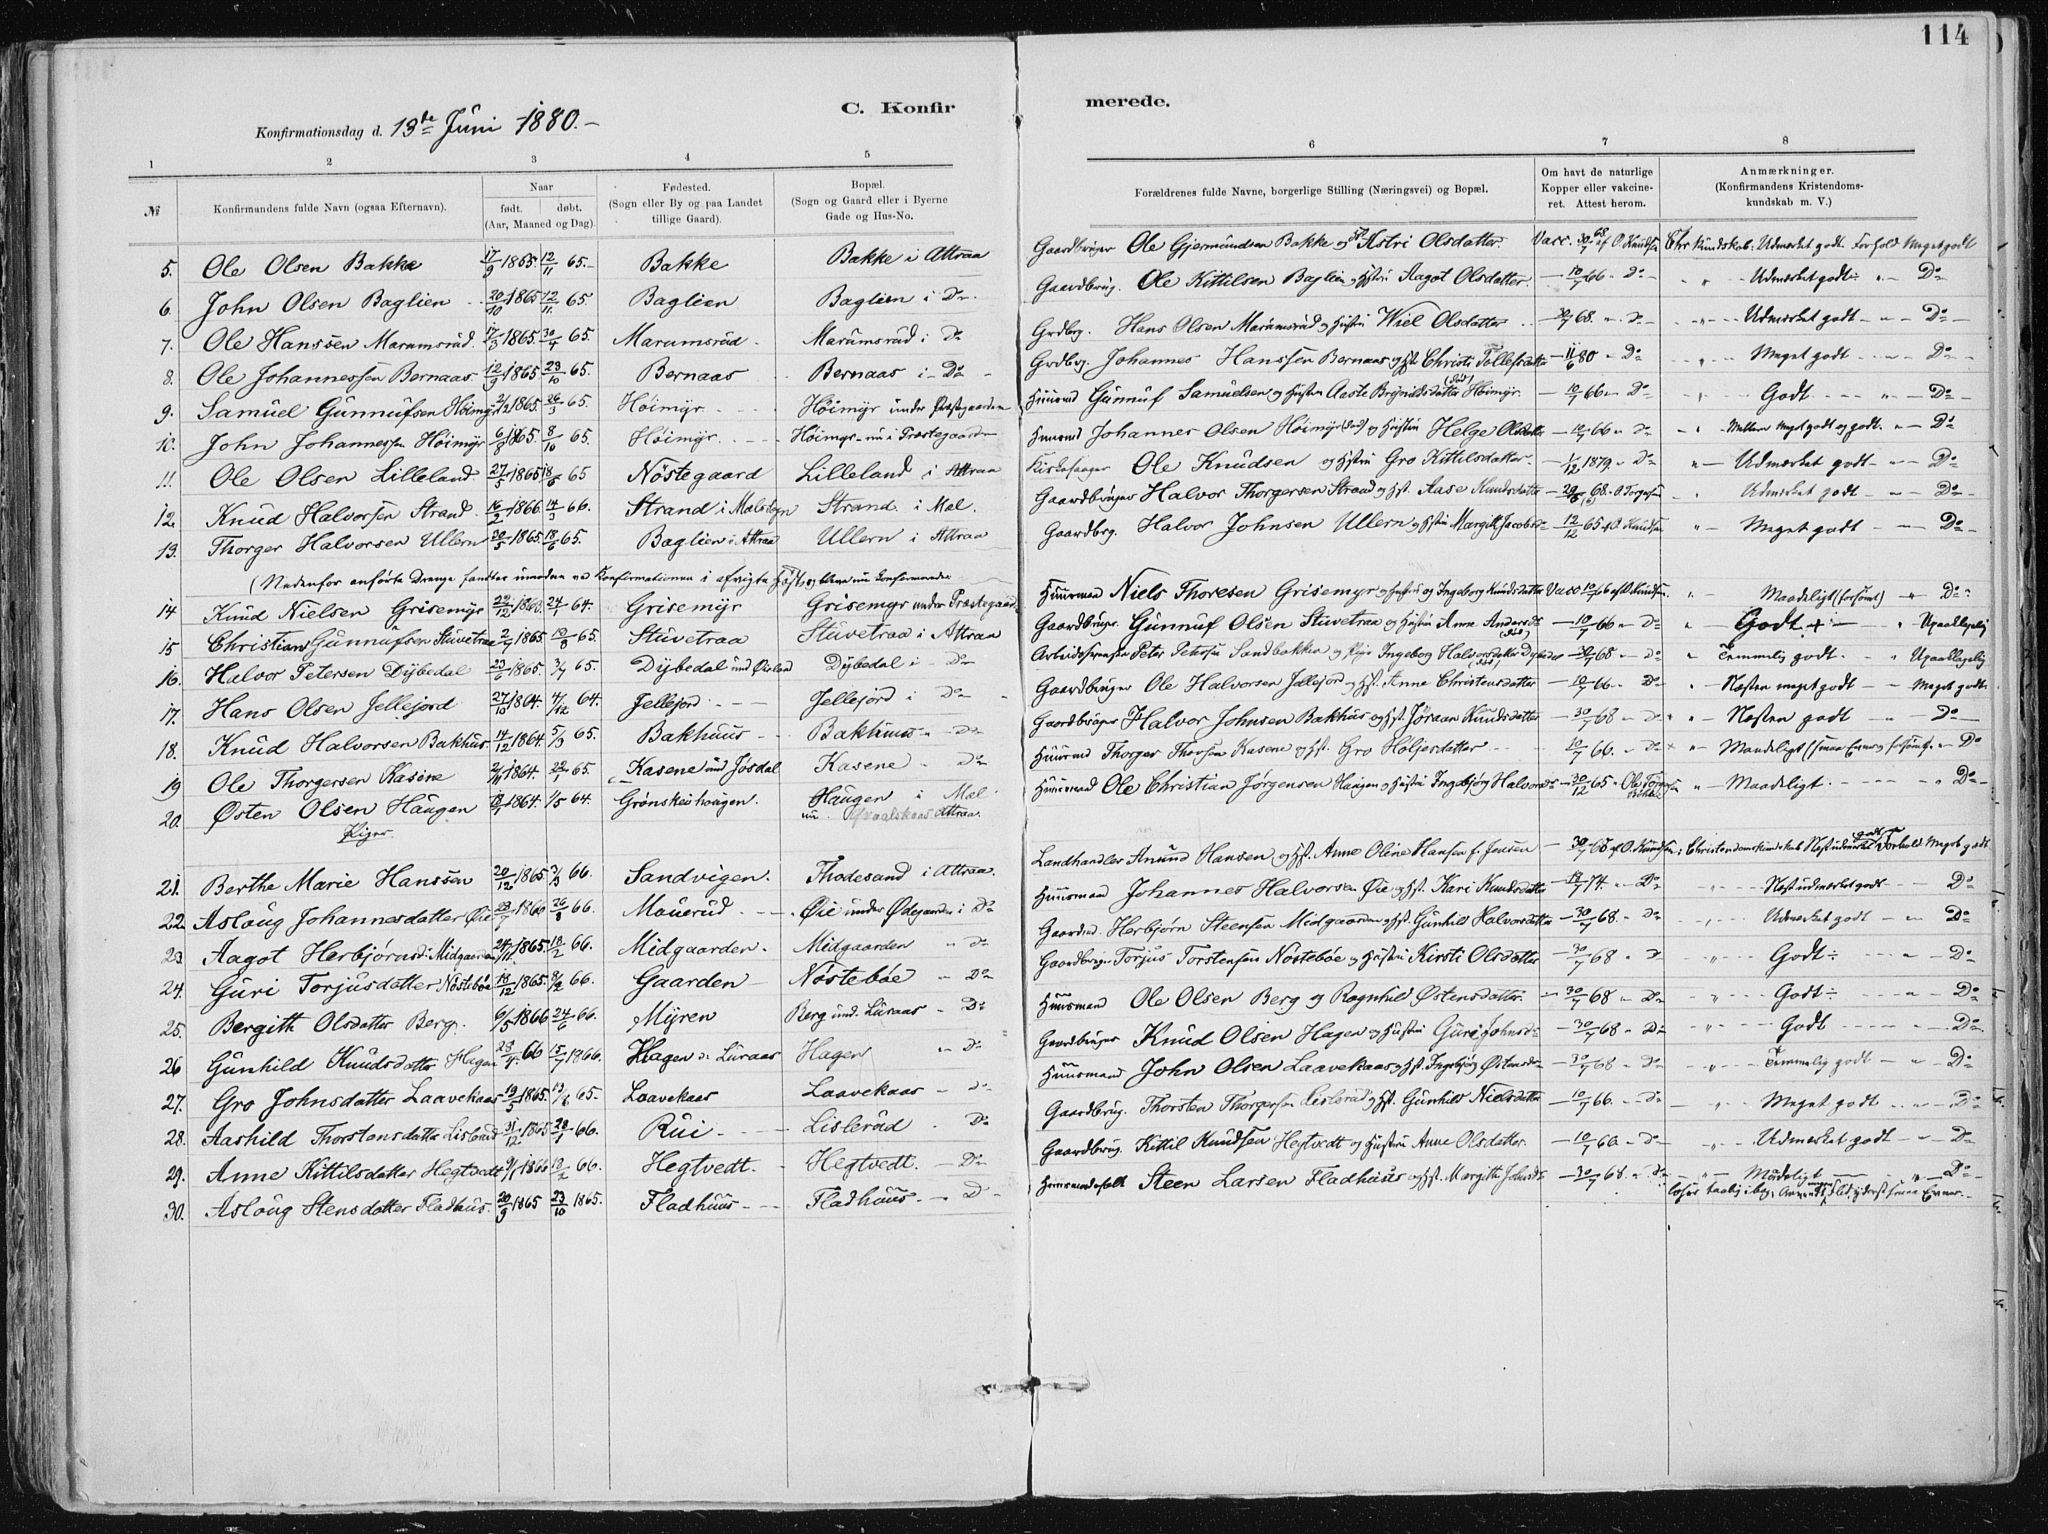 114
C. Konfirmerede.
Konfirmationsdag d. 13de Juni 1880.
1 2 3 4 5 6 7 8
№ Konfirmandens fulde Navn (ogsaa Efternavn). Naar født. døbt. (Aar, Maaned og Dag). Fødested. (Sogn eller By og paa Landet tillige Gaard). Bopæl. (Sogn og Gaard eller i Byerne Gade og Hus-No. Forældrenes fulde Navne, borgerlige Stilling (Næringsvei) og Bopæl. Om havt de naturlige Kopper eller vakcineret. Attest herom. Anmærkninger. (Konfirmandens Kristendomskundskab m. V.)
5. Ole Olsen Bakke 17/9 1865. 12/11 65. Bakke Bakke i Attraa Gaardbruger Ole Gjermundsen Bakke og Astri Olsdatter. Vacc. 30/7 68 af O. Knudsen Chr. Kundskab: Udmærket godt. Forhold Meget godt
6. John Olsen Baglien 20/10 1865 12/11. 65. Baglien Baglien i Do Gaardbrug. Ole Kittilsen Baglien og Hstru Aagot Olsdatter. – 10/7 66 – Do – " – Udmærket godt – " – Do
7. Ole Hanssen Marumsrud. 17/3 1865. 30/4 65. Marumsrud – Marumsrud i Do Grdbrg. Hans Olsen Marumsrud og Hustru Wiel Olsdatter – 30/7 68. " Do – " – Udmærket godt – " – Do
8. Ole Johannessen Bernaas. 12/9 1865 23/10 65. Bernaas Bernaas i Do Grdbrg. Johannes Hanssen Bernaas og Hst. Christi Tollefsdatter – 11/6 80 " Do " – Meget godt – " – Do
9. Samuel Gunnufsen Høimyr 2/2 1865. 26/3 65. Høimyr. Høimyr under Præstegaarden Huusmd Gunnuf Samuelsen og Hustru Aaste Brynildsdatter (død) Høimyr. – 10/7 66 – Do " – Godt – " – Do
10. John Johannessen Høimyr 6/8 1865. 8/10 65. Høimyr. Høimyr – nu i Præstegaarden Huusmd Johannes Olsen Høimyr (død) og Hustru Helge Olsdatter – 10/7 66 " Do – " Mellem meget godt og godt. " – Do
11. Ole Olsen Lilleland. 27/5 1865 18/6 65 Nøstegaard Lilleland i Attraa Kirkesanger Ole Knudsen og Hstru Gro Kittilsdatter. – 1/12 1879. – Do " – Udmærket godt – " – Do
12. Knud Halvorsen Strand. 16/2 1866. 14/3 66. Strand i Mælsogn Strand. i Mæl. Gaardbruger Halvor Thorgersen Strand og Hst. Aase Knudsdatter – 68. O. Torgersen " Udmærket godt – " – Do
13. Thorger Halvorsen Ullern 20/5 1865. 18/6 65. Baglien i Attraa Ullern i Attraa Gaardbrg. Halvor Johnsen Ullern og Hstru Margit Jacobsd – 12/12 65 af O. Knudsen " – Meget godt – " – Do
(Nedenfor anførte Drenge fandtes umodne ved Konfirmationen i afvigte Høst, og bleve nu konfirmerede.
14 Knud Nielsen Grisemyr 22/12 1863. 24/1 64. Grisemyr Grisemyr under Præstegaard Huusman Niels Thoresen Grisemyr og Hustru Ingeborg Knudsdatter Vacc 10/7 66 af O. Knudsen. " Maadeligt (forsømt) " Do
15 Christian Gunnufsen Stuvetraa 2/7 1865 13/8 65. Stuvetraa Stuvetraa i Attraa Gaardbrugr. Gunnuf Olsen Stuvetraa og Hustru Anne Andersdt (død) – 10/7 66 – Do " Godt + – " Upaaklagelig
16. Halvor Petersen Dybedal 23/6 1865. 3/7 65. Dybedal Dybedal i Do Peter Petersen Sandbakke og Pige Ingeborg Halvorsdatter (død) Dybedal – 30/7 68 – Do " Temmelig godt. – " Upaaklagelig
17. Hans Olsen Jellejord 27/10 1864. 4/12 64. Jellejord – Jellejord i Do Gaardbruger Ole Halvorsen Jellejord og Hst. Anne Christensdatter – 10/7 66. – Do " – Næsten meget godt – Meget godt
18. Knud Halvorsen Bakhus. 14/12 1864. 5/3 65. Bakhuus – Bakhuus – Do Gaardbruger Halvor Johnsen Bakhus og Hst. Jøraan Knudsdatter – 30/7 68 " Do " – Næsten godt – " – Do
19 Ole Thorgersen Kasine 2/11 1864. 22/1 65. Kasene und Jøsdal Kasene " Do Huusmd Thorger Thorsen Kasene og Hst. Gro Holjesdatter – 10/7 66. – Do " – Maadeligt (smaa Evner og forsømt. " Do
20. Østen Olsen Haugen 1864. 1/5 64. Grønskeihougen. Haugen i Mæl nu Attraa. Huusmand Ole Christian Jørgensen Haugen og Hustru Ingebjørg Halvorsd – 30/12 65 " – Maadeligt. " Do
Piger.
21. Berthe Marie Hanssen 20/12 1865 3/3 66. Sandvigen. Thodesand i Attraa. Landhandler Anund Hansen og Hst. Anne Oline Hansen f. Jensen – 30/7 68 af O. Knudsen; Christendomskundskab Næst udmærket godt Forhold Meget godt
22. Aslaug Johannesdatter Øie 23/7 1866 26/8 66. Mouerud – Øie under Ødegaarden i Do Huusmand Johannes Halvorsen Øie og Hst. Kari Knudsdatter – 74. " Do – " – Næst udmærket godt – Do
23. Aagot Herbjørnsd. Midgaarden 24/11 1865. 18/2 66. Midgaarden. Midgaarden " Do Gaardmd Herbjørn Steensen Midgaarden og Hst. Gunhild Halvorsdatter – 30/7 68. – Do – " – Udmærket godt – " – Do
24. Guri Torjusdatter Nøstebøe 18/12 1865. 8/2 66. Gaarden – Nøstebøe " Do Gaardbrgr. Torjus Torstensen Nøstebøe og Hustru Kirsti Olsdatter – 30/7 68 " – " – Godt ÷ – " – Do
25. Bergith Olsdatter Berg. 6/5 1866 24/6 66. Myren Berg und. Luraas – Do Huusmand Ole Olsen Berg og Ragnhild Østensdatter. – 30/7 68 " Do – " – Godt ÷ – Do
26 Gunhild Knudsdatter Hagen 23/4. 66 15/7 1866. Hagen u. Luraas Hagen " Do Gaardbruger Knud Olsen Hagen og Hustru Guro Johnsd – 30/7 68 " Do " – Godt – – Do
27. Gro Johnsdatter Laavekaas 19/5 1865. 65. Laavekaas Laavekaas – Do Huusmand John Olsen Laavekaas og Hst. Ingebjørg Østensd – 30/7 68 " Do – " – Temmelig godt – " Do
28. Aashild Thorstensdatter Lislerud 31/12 1865 28/1 66. Rui – Lislerud. Do Gaardbrug. Thorsten Thorgersen Lislerud og Hst. Gunhild Nielsdatter – 10/7 66. " Do – " – Meget godt – Do
29. Anne Kittilsdatter Hegtvedt 9/1 1866 18/2 66. Hegtvedt. – Hegtvedt. – Do Gaardbrug. Kittil Knudsen Hegtvedt og Hustru Anne Olsdatter. – 10/7 66. – Do – " Udmærket godt – " – Do
30. Aslaug Stensdatter Fladhus. 20/9 1865 23/10 1865. Fladhuus – Fladhuus. – Do Steen Larsen Fladhuus og Hst. Margith Johnsd – 30/7 68. " Do – " – Maadeligt – " – Do
læser i bog, Flid, yderst smaa Evner.